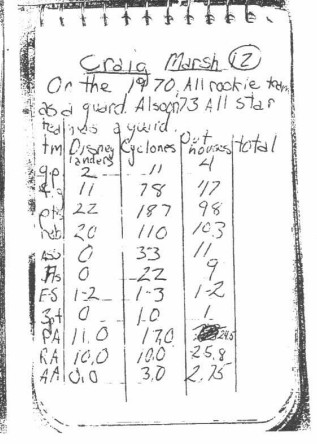 Craig Marsh 12
On the 1970 All rookie team
as a guard. Also on 73 All star
team as a guard.
tm Disneylanders Cyclones Outhouses total
g.p. 2 11 4
f.g. 11 78 47
pts 22 187 98
reb 20 110 103
Ass 0 33 11
0 22 9
FS 1-2 1-3 1-2
3pt 0 1.0 1
PA 11.0 17.0 24.5
RA 10.0 10.0 25.8
AA 0.0 3.0 2.75